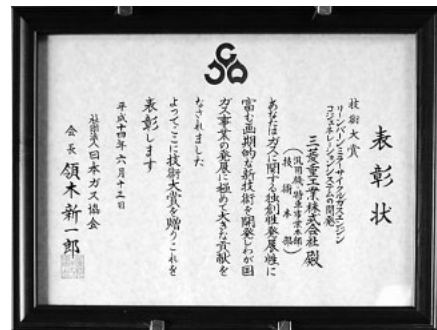 表彰状
技術大賞
リーンバーンミラーサイクルガスエンジン
コジェネレーションシステムの開発
三菱重工業株式会社 殿
(汎用機・特車事業本部
技術本部)
あなたはガスに関する独創性発展性に
富む画期的な新技術を開発しわが国
ガス事業の発展に極めて大きな貢献を
なされました
よってここに技術大賞を贈りこれを
表彰します
平成十四年六月十三日
社団法人日本ガス協会
会長 領木新一郎